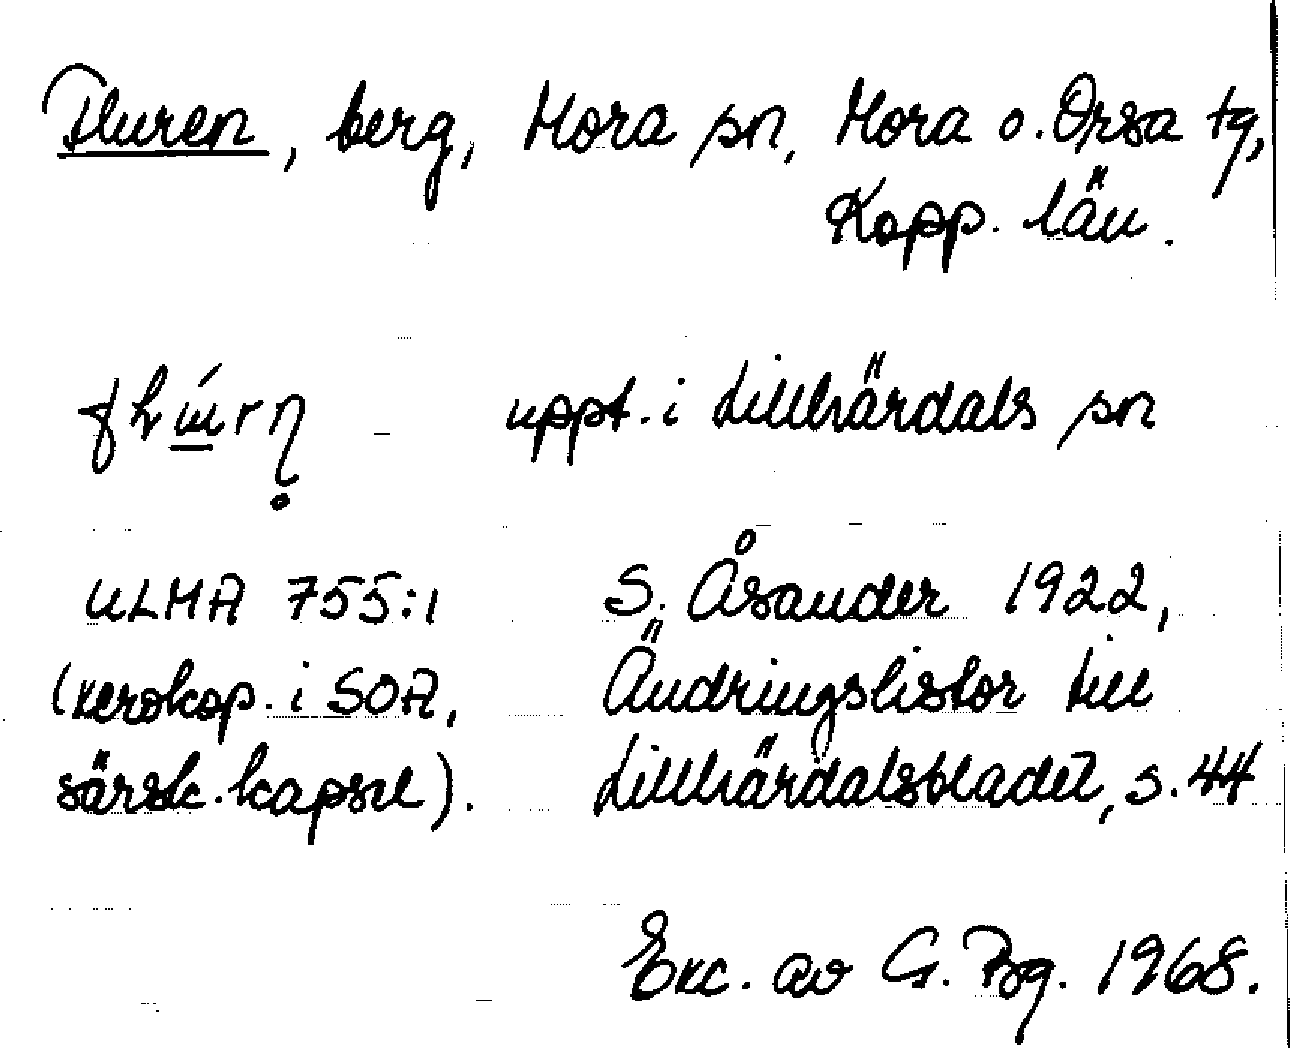 Fluren, berg, Mora sn, Mora o. Orsa tg,
Kopp. län.
uppt. i Lillhärdals sn
ULMA 755:1 S. Åsander 1922,
(xerokop. i SOA, Ändringslistor till
särsk. kapsel). Lillhärdalsbladet, s. 44
Exc. av G. Bg. 1968.